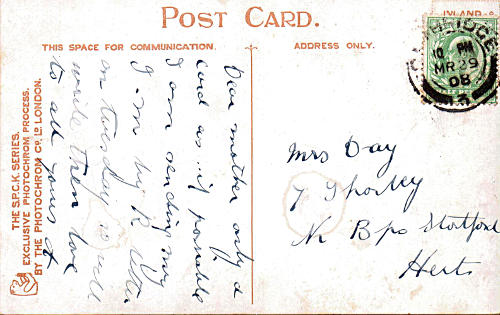 POST CARD.
THIS SPACE FOR COMMUNICATION.
ADDRESS ONLY.
INLAND
CAMBRIDGE
10 PM
MR 29
08
THE S.P.C.K. SERIES.
EXCLUSIVE PHOTOCHROM PROCESS.
BY THE PHOTOCHROM CO. LD. LONDON.
Dear mother only a
card as if possable
I am sending my
on Tuesday will
write then love
to all yours
Mrs Day
7 Thorley
Nr Bps Stortford
Herts